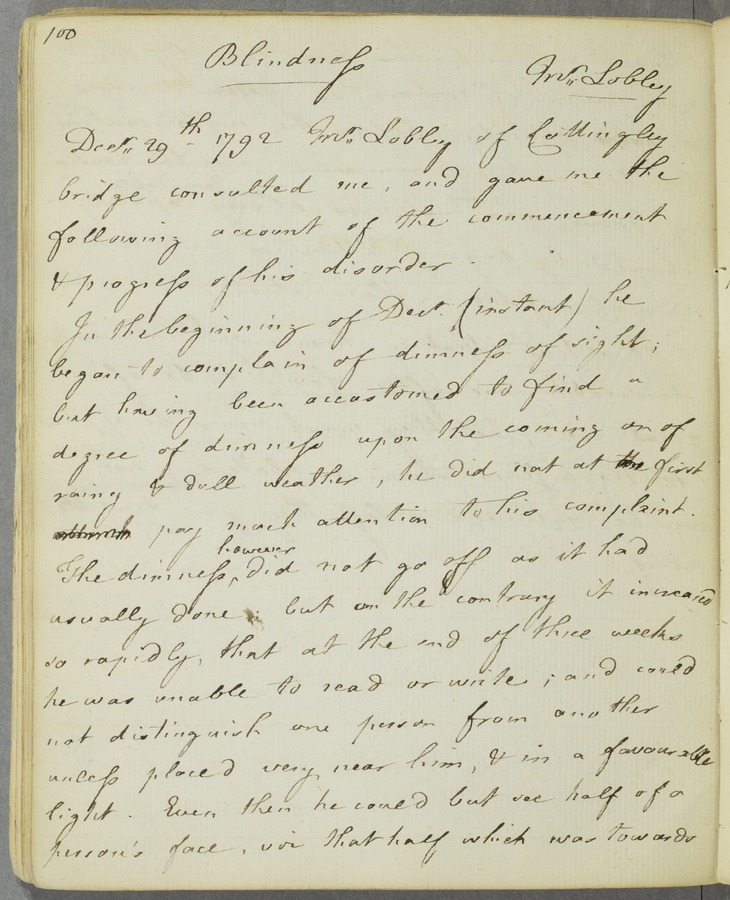 100
Blindness
Mr. Lobley
Decr. 29th 1792 Mr. Lobley of Cottingley
bridge consulted me, and gave me the
following account of the commencement
& progress of his disorder.
In the beginning of Decr. (instant) he
began to complain of dimness of sight;
but having been accustomed to find a
degree of dimness upon the coming on of
rainy & dull weather, he did not at the first
pay much attention to his complaint.
however
The dimness, did not go off as it had
usually done; but on the contrary it increased
so rapidly, that at the end of three weeks
he was unable to read or write; and could
not distinguish one person from another
unless placed very near him, & in a favourable
light. Even then he could but see half of a
person's face, viz that half which was towards